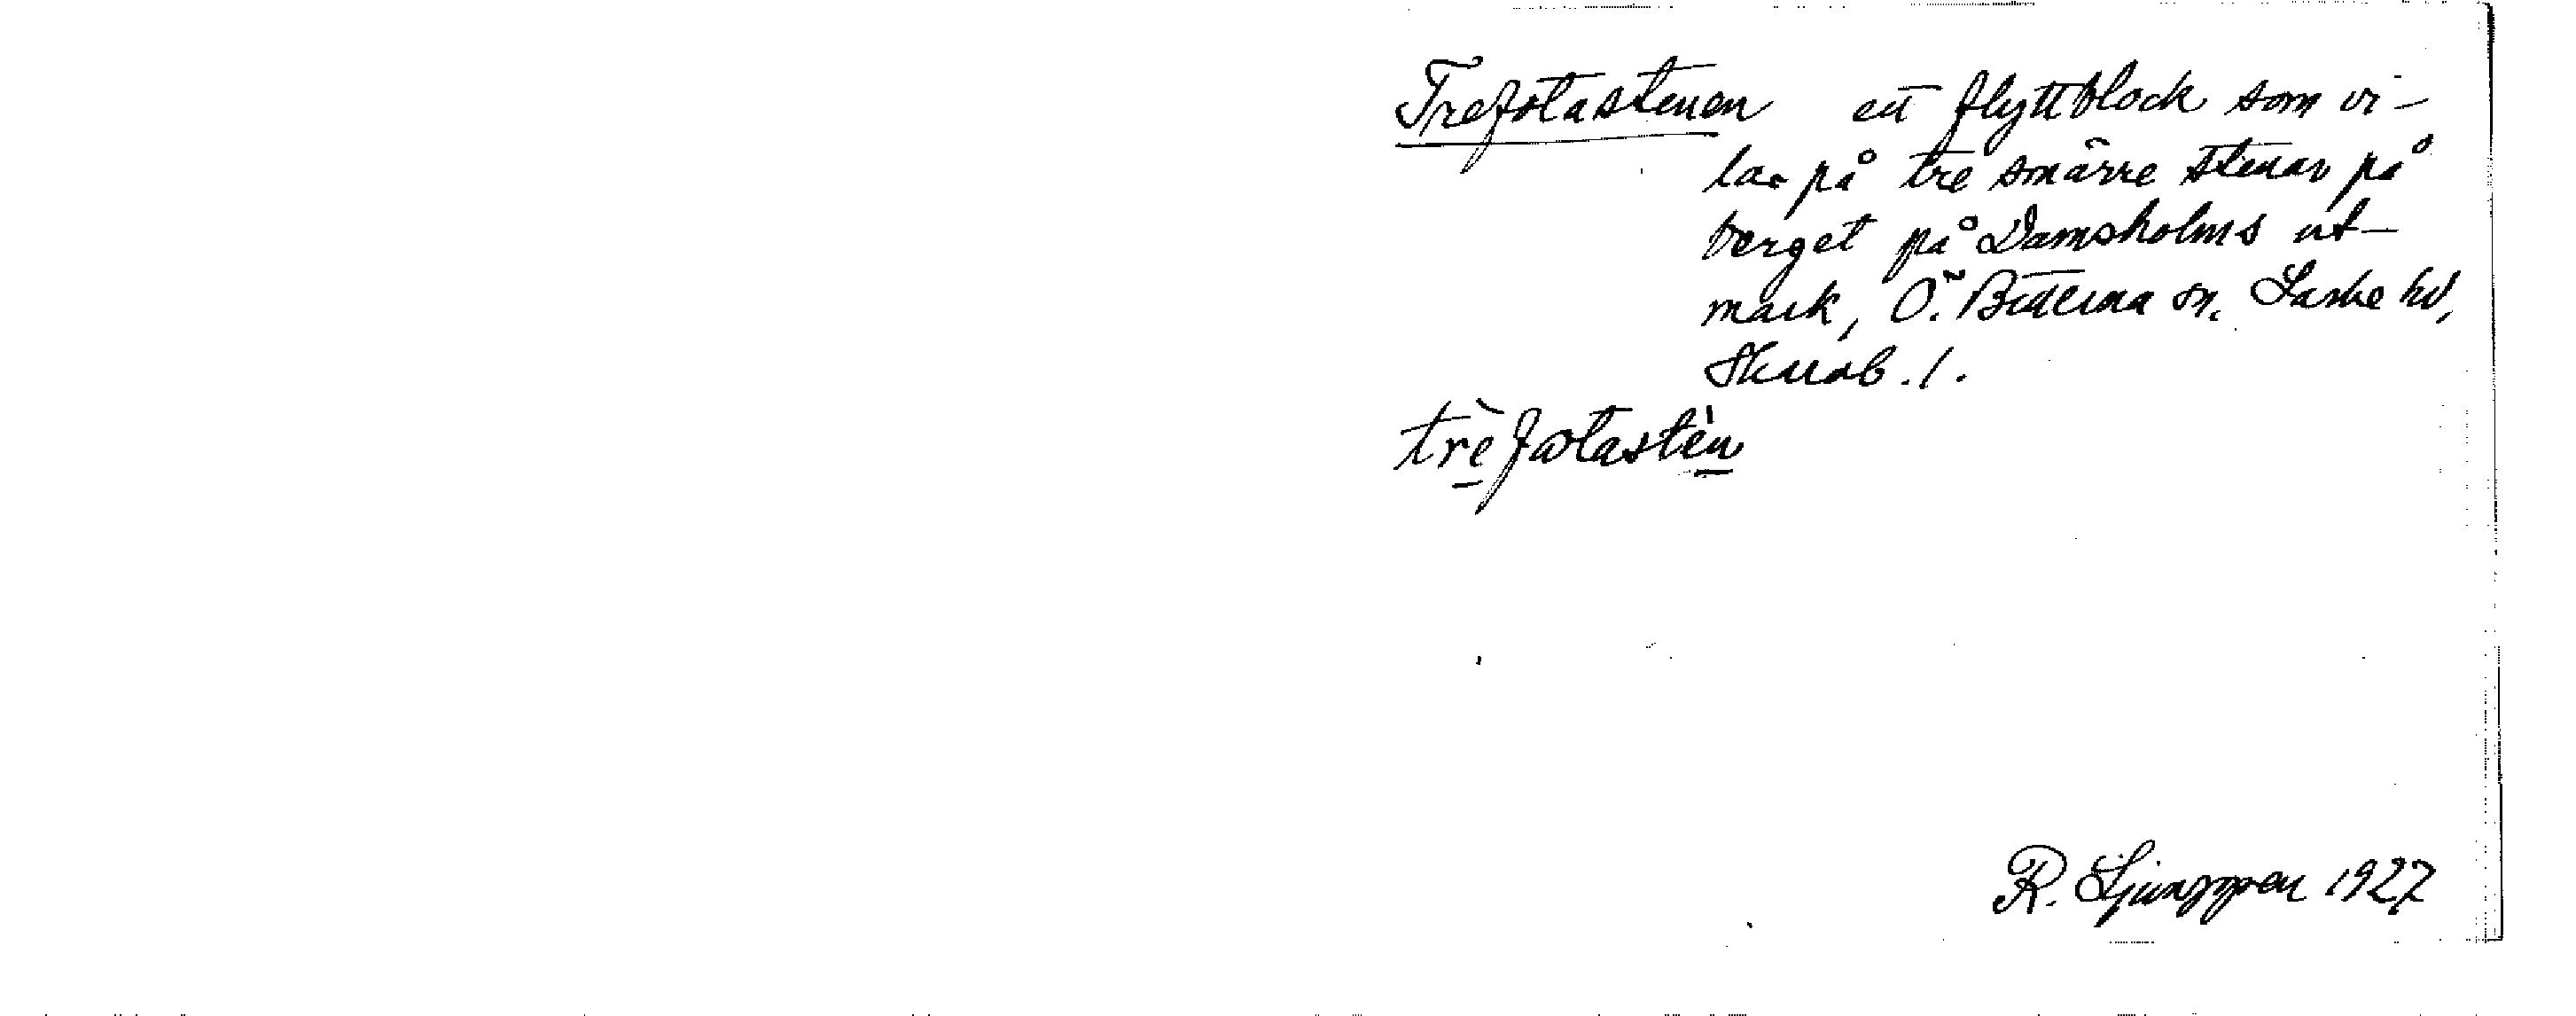 Trefotastenen ett flyttblock som vi-
lar på tre smärre stenar på
berget på Damsholms ut-
mark, Ö. Bitterna sn. Laske hd,
Skarab. l.
trèfotastèn
R. Ljunggren 1927